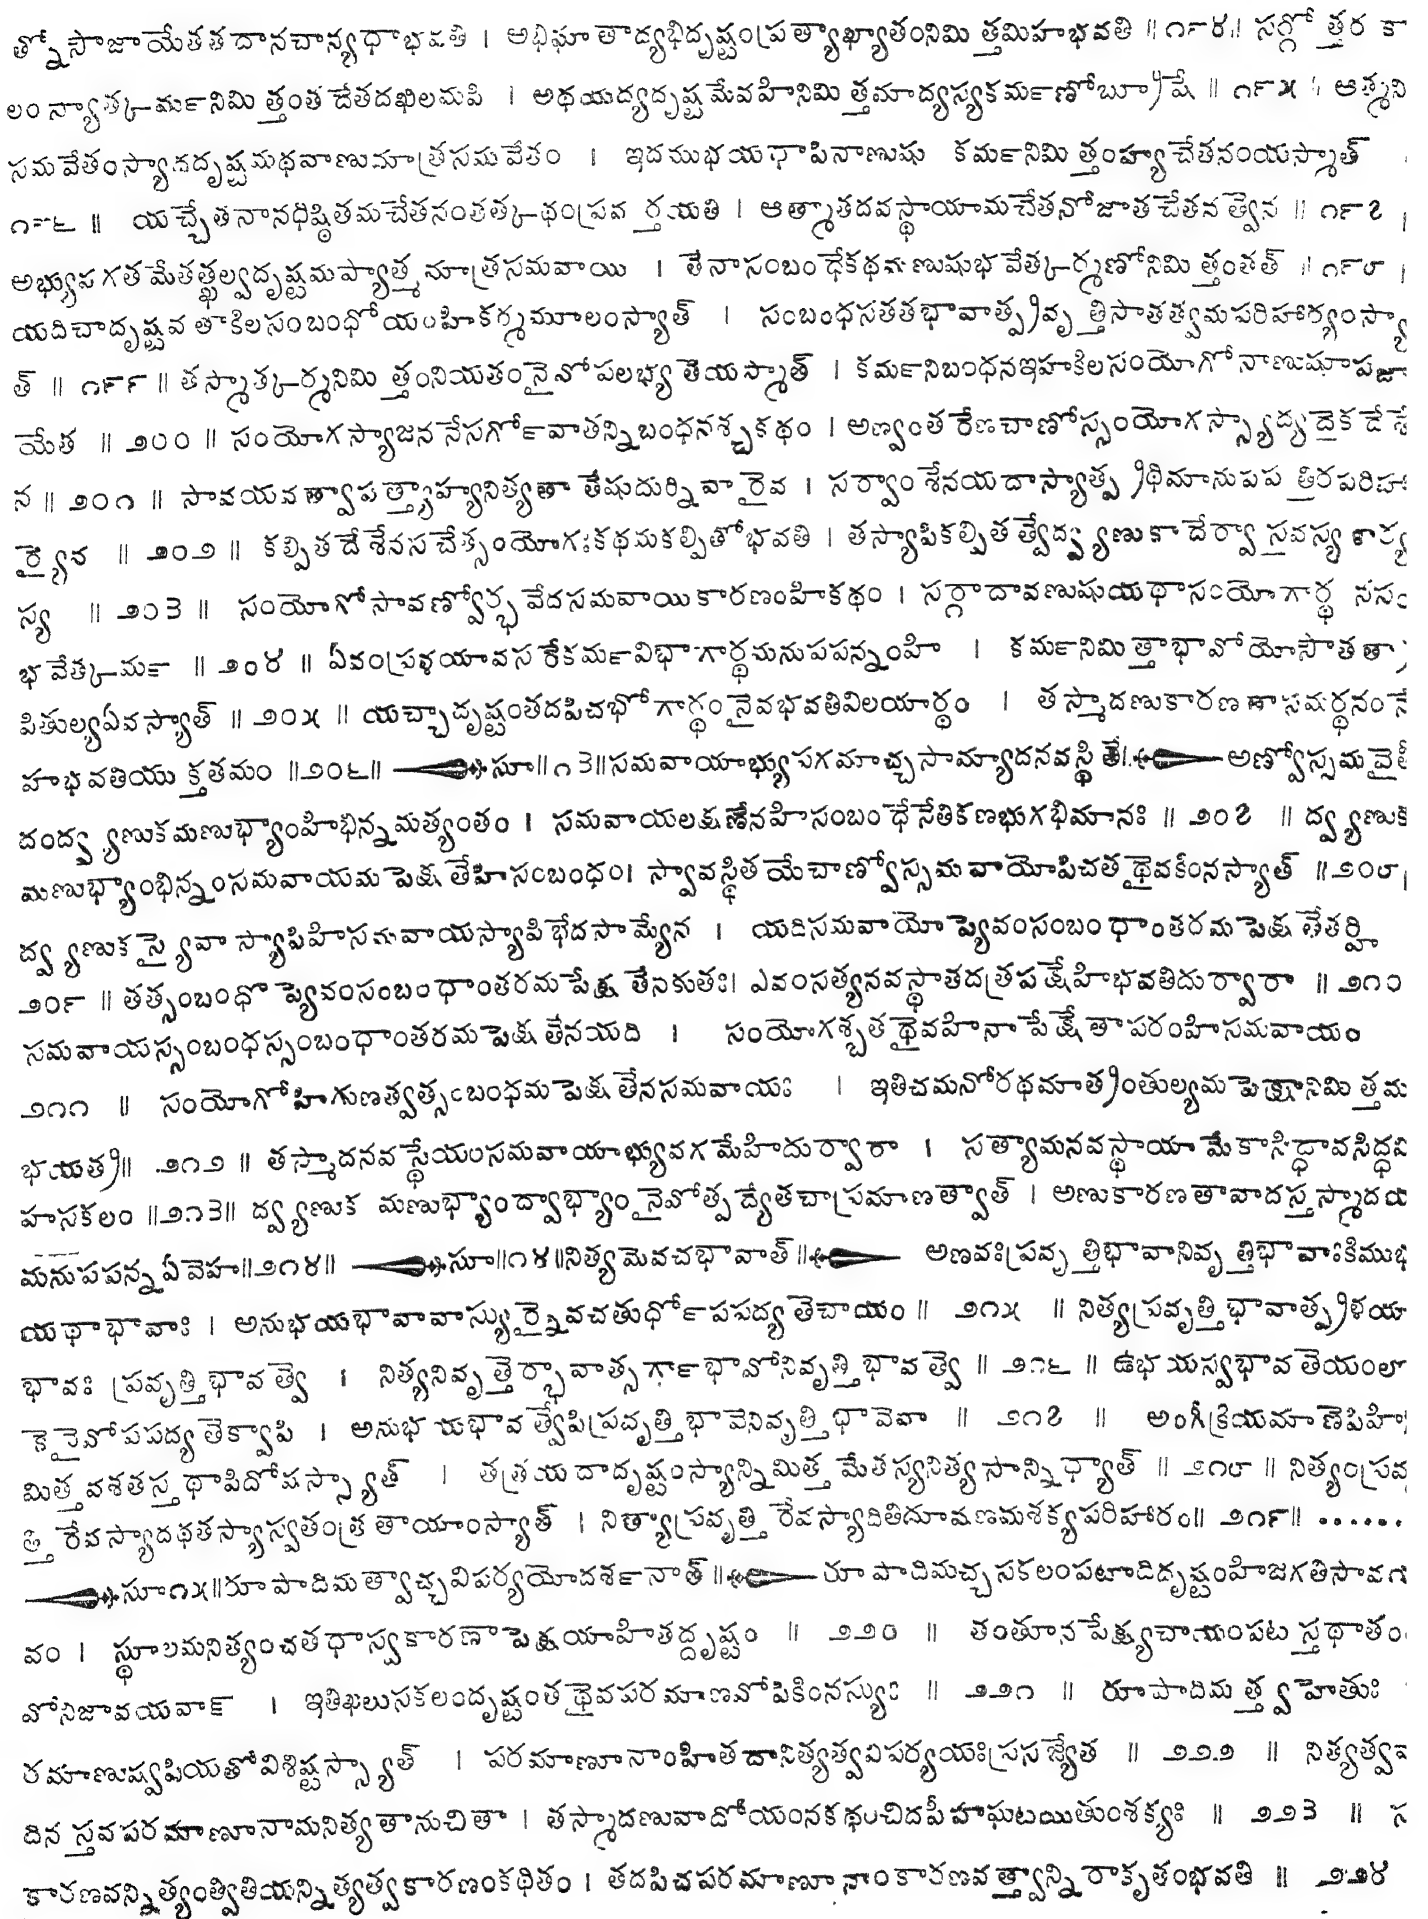 త్నోసౌజాయేతతదానచాన్యధాభవతి । అభిఘాతాద్యభిదృష్టంప్రత్యాఖ్యాతంనిమిత్తమిహభవతి ॥ ౧౯౪॥ సర్గోత్తర కా
లం న్యాత్కర్మనిమిత్తంతదేతదఖిలమపి । అథయద్యదృష్టమేవహినిమిత్తమాద్యస్యకర్మణోబ్రూషే ॥ ౧౯౫ ॥ ఆత్మని
సమవేతంస్యాదదృష్టమథవాణుమాత్రసమవేతం । ఇదముభయథాపినాణుషు కర్మనిమిత్తంహ్యచేతనంయస్మాత్
౧౯౬ ॥ యచ్చేతనానధిష్ఠితమచేతనంతత్కథంప్రవర్తయతి । ఆత్మాతదవస్థాయామచేతనోజాతచేతనత్వేన ॥ ౧౯౭ ॥
అభ్యుపగతమేతత్ఖల్వదృష్టమప్యాత్మమాత్రసమవాయి । తేనాసంబంధేకథమణుషుభవేత్కర్మణోనిమిత్తంతత్ ॥ ౧౯౮ ॥
యదిచాదృష్టవతాకిలసంబంధోయంహికర్మమూలంస్యాత్ । సంబంధసతతభావాత్ప్రవృత్తిసాతత్వమపరిహార్యంస్యా
త్ ॥ ౧౯౯ ॥ తస్మాత్కర్మనిమిత్తంనియతంనైవోపలభ్యతేయస్మాత్ । కర్మనిబంధనఇహకిలసంయోగోనాణుషూపజా
యేత ॥ ౨౦౦ ॥ సంయోగస్యాజననేసర్గోవాతన్నిబంధనశ్చకథం । అణ్వంతరేణచాణోస్సంయోగస్స్యాద్యదైకదేశే
న ॥ ౨౦౧ ॥ సావయవత్వాపత్త్యాహ్యనిత్యతాతేషుదుర్నివారైవ । సర్వాంశేనయదాస్యాత్ప్రథిమానుపపత్తిరపరిహా
ర్యైవ ॥ ౨౦౨ ॥ కల్పితదేశేనసచేత్సంయోగఃకథమకల్పితోభవతి । తస్యాపికల్పితత్వేద్వ్యణుకాదేర్వాస్తవస్యకార్య
స్య ॥ ౨౦౩ ॥ సంయోగోసావణ్వోర్భవేదసమవాయికారణంహికథం । సర్గాదావణుషుయథాసంయోగార్థ నసం
భవేత్కర్మ ॥ ౨౦౪ ॥ ఏవంప్రళయావసరేకర్మవిభాగార్థమనుపపన్నంహి । కర్మనిమిత్తాభావోయోసౌతత్రా
పితుల్యఏవస్యాత్ ॥ ౨౦౫ ॥ యచ్చాదృష్టంతదపిచభోగార్థంనైవభవతివిలయార్థం । తస్మాదణుకారణతాసమర్థనంనే
హభవతియుక్తతమం ॥౨౦౬॥ సూ॥౧౩॥సమవాయాభ్యుపగమాచ్చసామ్యాదనవస్థితే। అణ్వోస్సమవైతీ
దంద్వ్యణుకమణుభ్యాంహిభిన్నమత్యంతం । సమవాయలక్షణేనహిసంబంధేనేతికణభుగభిమానః ॥ ౨౦౭ ॥ ద్వ్యణుక
మణుభ్యాంభిన్నంసమవాయమపేక్షతేహిసంబంధం। స్వావస్థితయేచాణ్వోస్సమవాయోపిచతథైవకింనస్యాత్ ॥౨౦౮।
ద్వ్యణుకస్యైవాస్యాపిహిసమవాయస్యాపిభేదసామ్యేన । యదిసమవాయోప్యేవంసంబంధాంతరమపేక్షతేతర్హి
౨౦౯ ॥ తత్సంబంధోప్యేవంసంబంధాంతరమపేక్షతేనకుతః। ఎవంసత్యనవస్థాతదత్రపక్షేహిభవతిదుర్వారా ॥ ౨౧౦
సమవాయస్సంబంధస్సంబంధాంతరమపేక్షతేనయది । సంయోగశ్చతథైవహినాపేక్షేతాపరంహిసమవాయం
౨౧౧ ॥ సంయోగోహిగుణత్వత్సంబంధమపేక్షతేనసమవాయః । ఇతిచమనోరథమాత్రంతుల్యమపేక్షానిమిత్తము
భయత్ర॥ ౨౧౨ ॥ తస్మాదనవస్థేయంసమవాయాభ్యువగమేహిదుర్వారా । సత్యామనవస్థాయామేకాసిద్ధావసిద్ధమి
హసకలం ॥౨౧౩॥ ద్వ్యణుక మణుభ్యాంద్వాభ్యాంనైవోత్పద్యేతచాప్రమాణత్వాత్ । అణుకారణతావాదస్తస్మాదయ
మనుపపన్నఏవేహ॥౨౧౪॥ సూ॥౧౪॥నిత్యమేవచభావాత్॥ అణవఃప్రవృత్తిభావానివృత్తిభావాఃకిముభ
యథాభావాః । అనుభయభావావాస్యుర్నైవచతుర్ధోపపద్యతెచాయం॥ ౨౧౫ ॥ నిత్యప్రవృత్తిభావాత్ప్రళయా
భావః ప్రవృత్తిభావత్వె । నిత్యనివృత్తెర్భావాత్సర్గాభావోనివృత్తిభావత్వె ॥ ౨౧౬ ॥ ఉభయస్వభావతెయంలో
కెనైవోపపద్యతెక్వాపి । అనుభయభావత్వేపిప్రవృత్తిభావెనివృత్తిభావెవా ॥ ౨౧౭ ॥ అంగీక్రియమాణెపిహిని
మిత్తవశతస్తథాపిదోషస్స్యాత్ । తత్రయదాదృష్టంస్యాన్నిమిత్తమేతస్యనిత్యసాన్నిధ్యాత్ ॥ ౨౧౮ ॥ నిత్యంప్రవృ
త్తిరేవస్యాదథతస్యాస్వతంత్రతాయాంస్యాత్ । నిత్యాప్రవృత్తిరేవస్యాదితిదూషణమశక్యపరిహారం॥ ౨౧౯॥ ......
సూ౧౫॥రూపాదిమత్వాచ్చవిపర్యయోదర్శనాత్॥ రూపాదిమచ్చసకలంపటాదిదృష్టంహిజగతిసావయ
వం । స్థూలమనిత్యంచతథాస్వకారణాపెక్షయాహితద్దృష్టం ॥ ౨౨౦ ॥ తంతూనపేక్ష్యచాయంపటస్తథాతం
వోనిజావయవాన్ । ఇతిఖలుసకలందృష్టంతథైవపరమాణవోపికింనస్యుః ॥ ౨౨౧ ॥ రూపాదిమత్త్వహెతుః
రమాణుష్వపియతోవిశిష్టస్స్యాత్ । పరమాణూనాంహితదానిత్యత్వవిపర్యయఃప్రసజ్యేత ॥ ౨౨౨ ॥ నిత్యత్వవా
దినస్తవపరమాణూనామనిత్యతానుచితా । తస్మాదణువాదోయంనకథంచిదపీహఘటయితుంశక్యః ॥ ౨౨౩ ॥ స
కారణవన్నిత్యంత్వితియన్నిత్యత్వకారణంకథితం । తదపిచపరమాణూనాంకారణవత్త్వాన్నిరాకృతంభవతి ॥ ౨౨౪